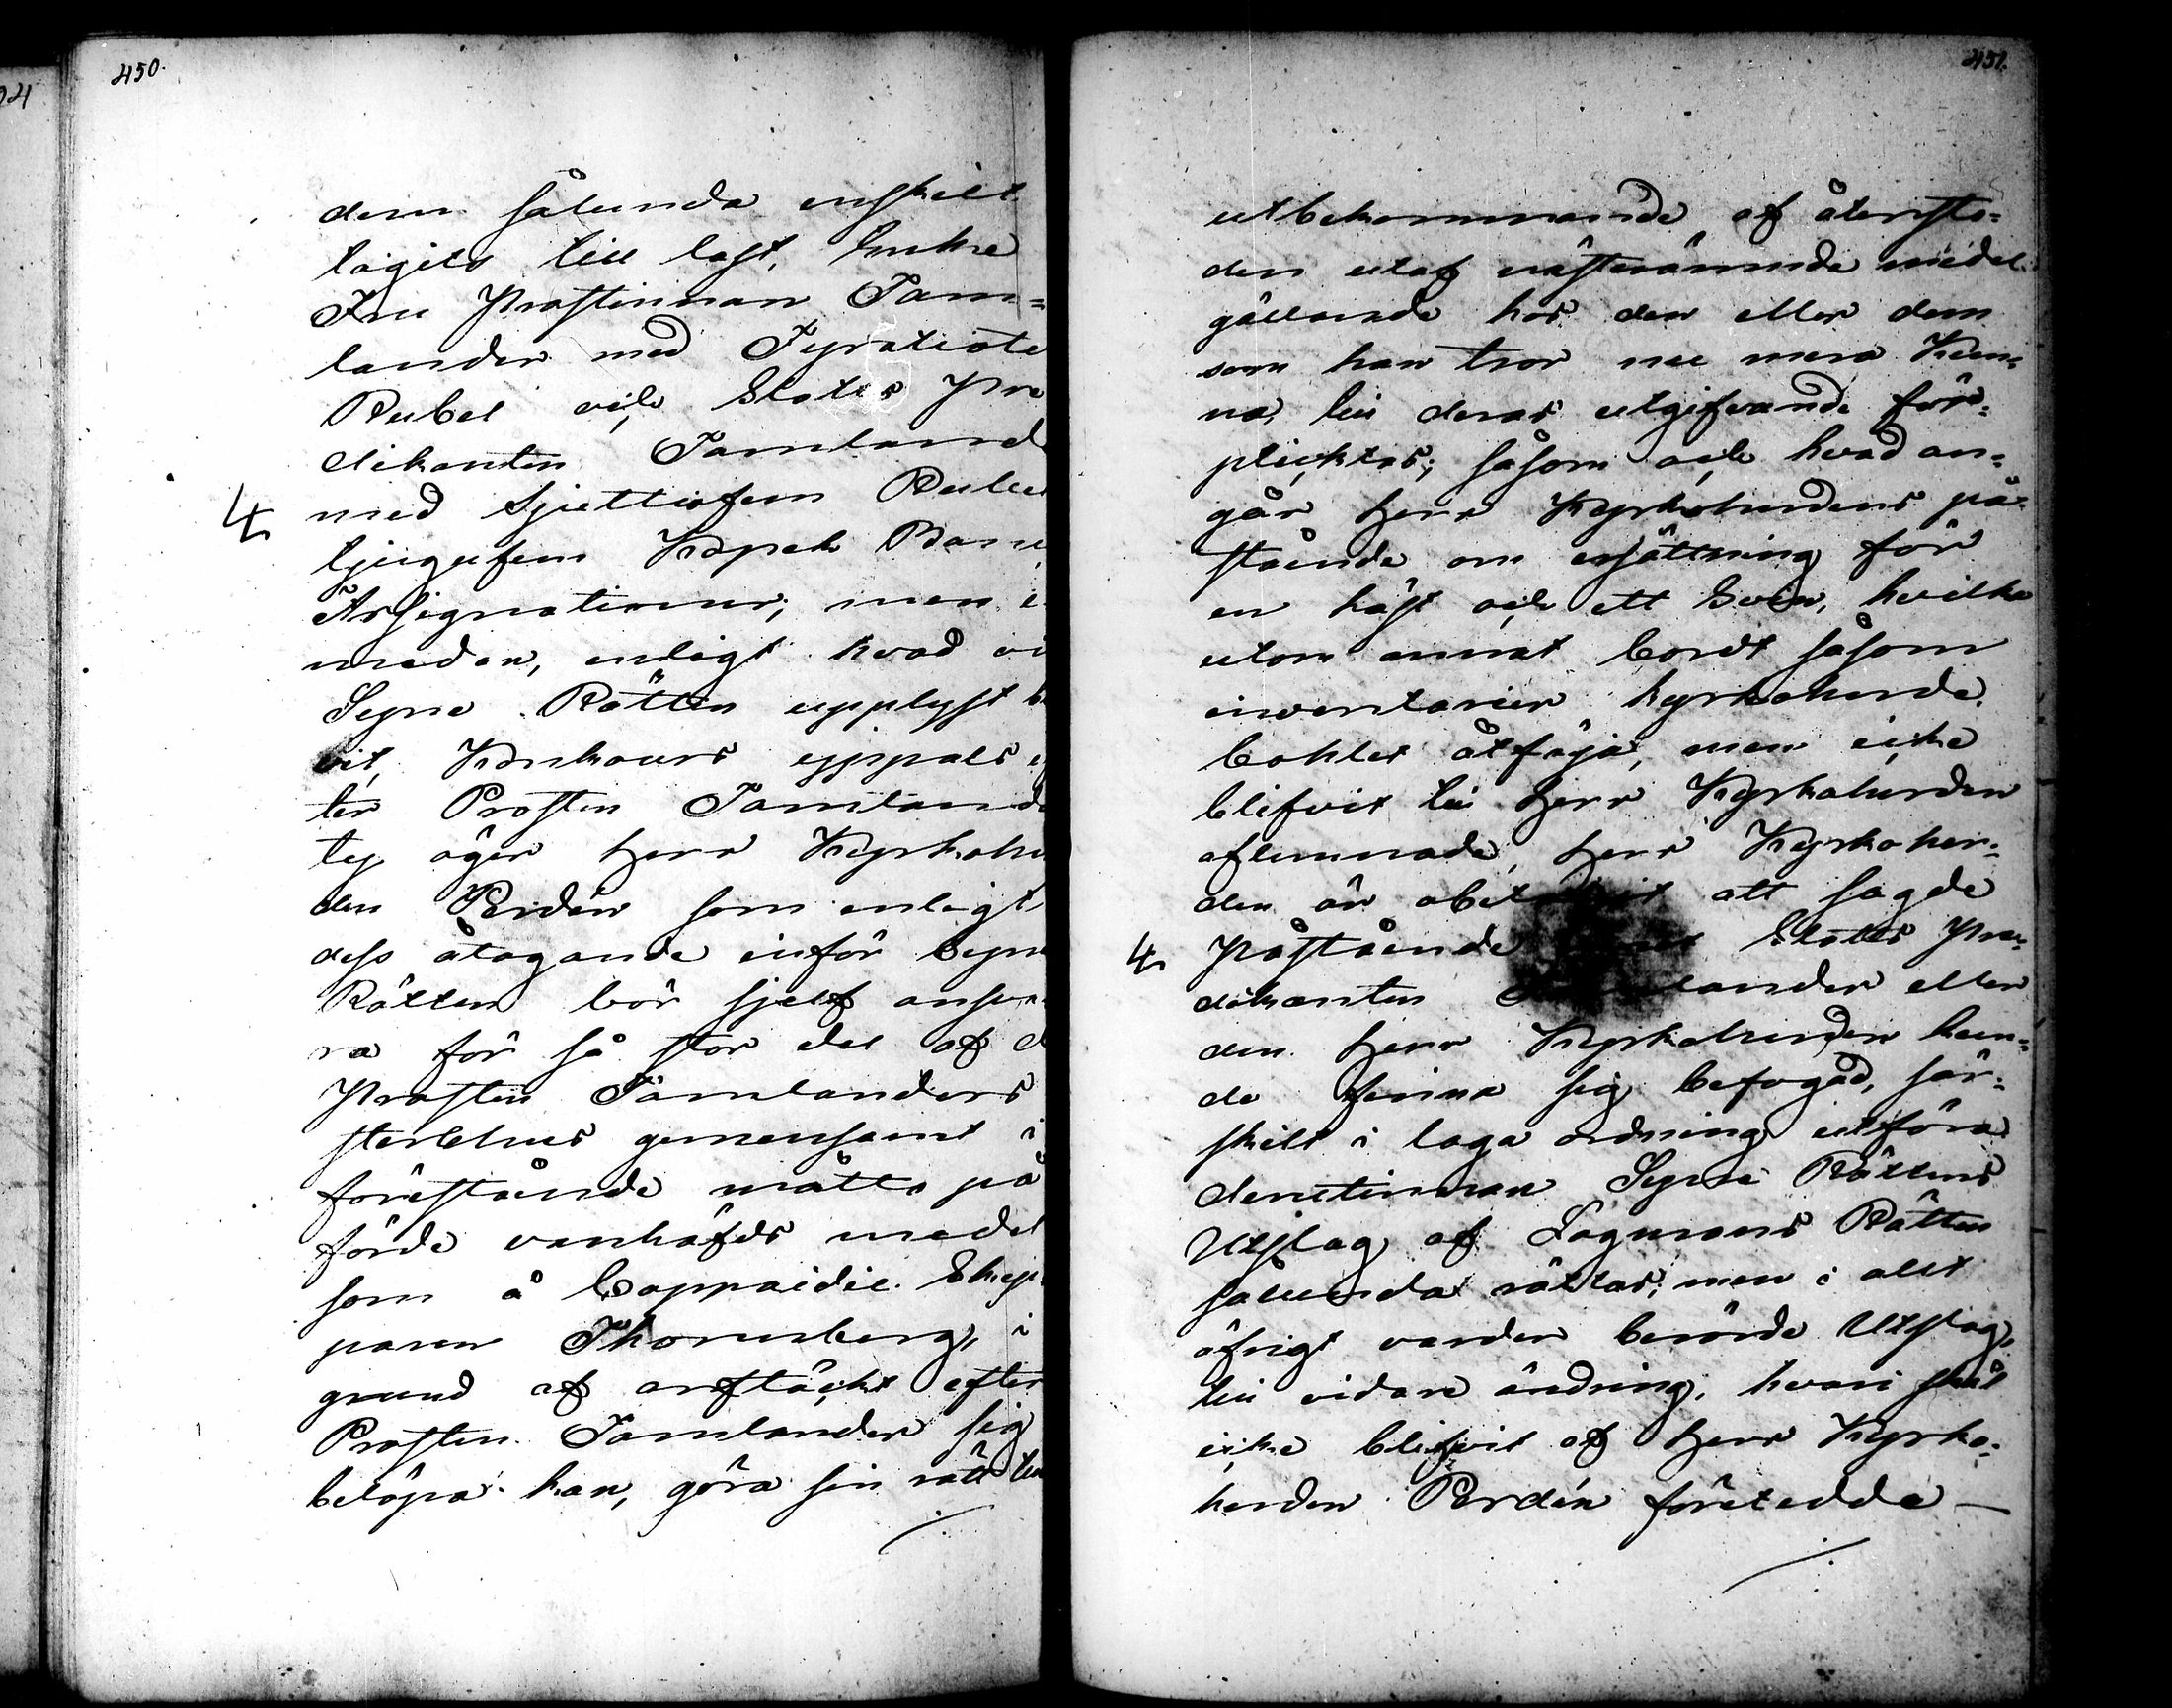 450.
dem sålunda enskilt
tagits till last, Enke
Fru Prostinnan Tam=
lander med Fyratioto
Rubel och Slotts Pre
dikanten Tamland
med Sjettiofem Rubel
tjugufem Kopek Banco
Assignationer, men i
medan, enligt hvad vi
Syne Rätten upplyst b
vit, Konkours yppats ef
ter Prosten Tamland
tej äger Herr Kyrkohe
den Perdén som enligt
dess åtagande inför Syne
Rätten bör sjelf ansva
ra för så stor del af d
Prosten Tamlanders
sterbhus gemensamt i
förestående måtto på
förde vanhäfds medel
som å Cappaidie Skep
paren Thornberg, i
grund af arftägt efter
Prosten Tamlander sig
belöpa kan, göra sin rätt till
451.
utbekommande af återsto=
den utaf nästnämnde medel
gällande hos den eller dem
som han tror nu mera kun=
na till deras utgifvande för=
pligtas; såsom och hvad an=
går Herr Kyrkoherdens på=
stående om ersättning för
en häst och ett Svin, hvilka
utom annat bordt såsom
inventarier Kyrkoherde
bohlet åtfölja, men icke
blifvit till Herr Kyrkoherden
aflemnade, Herr Kyrkoher=
den är obetagit att sagde
Påstående Slotts Pre=
dikanten Tamlander eller
den Herr Kyrkoherden kun=
de finna sig befogad, sär=
skilt i laga ordning utföra
derutinnan Syne Rättens
Utslag af Lagmans Rätten
sålunda rättas; men i allt
öfrigt varder berörde Utslag,
till vidare ändring, hvari skäl
icke blifvit af Herr Kyrko=
herden Perdén företedde —